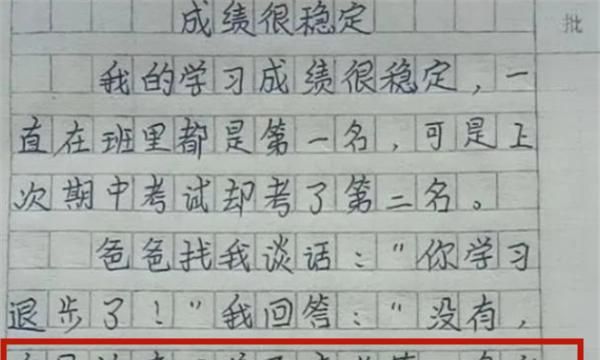 成绩很稳定
批
我的学习成绩很稳定，一
直在班里都是第一名，可是上
次期中考试却考了第二名。
爸爸找我谈话："你学习
退步了！"我回答："没有，